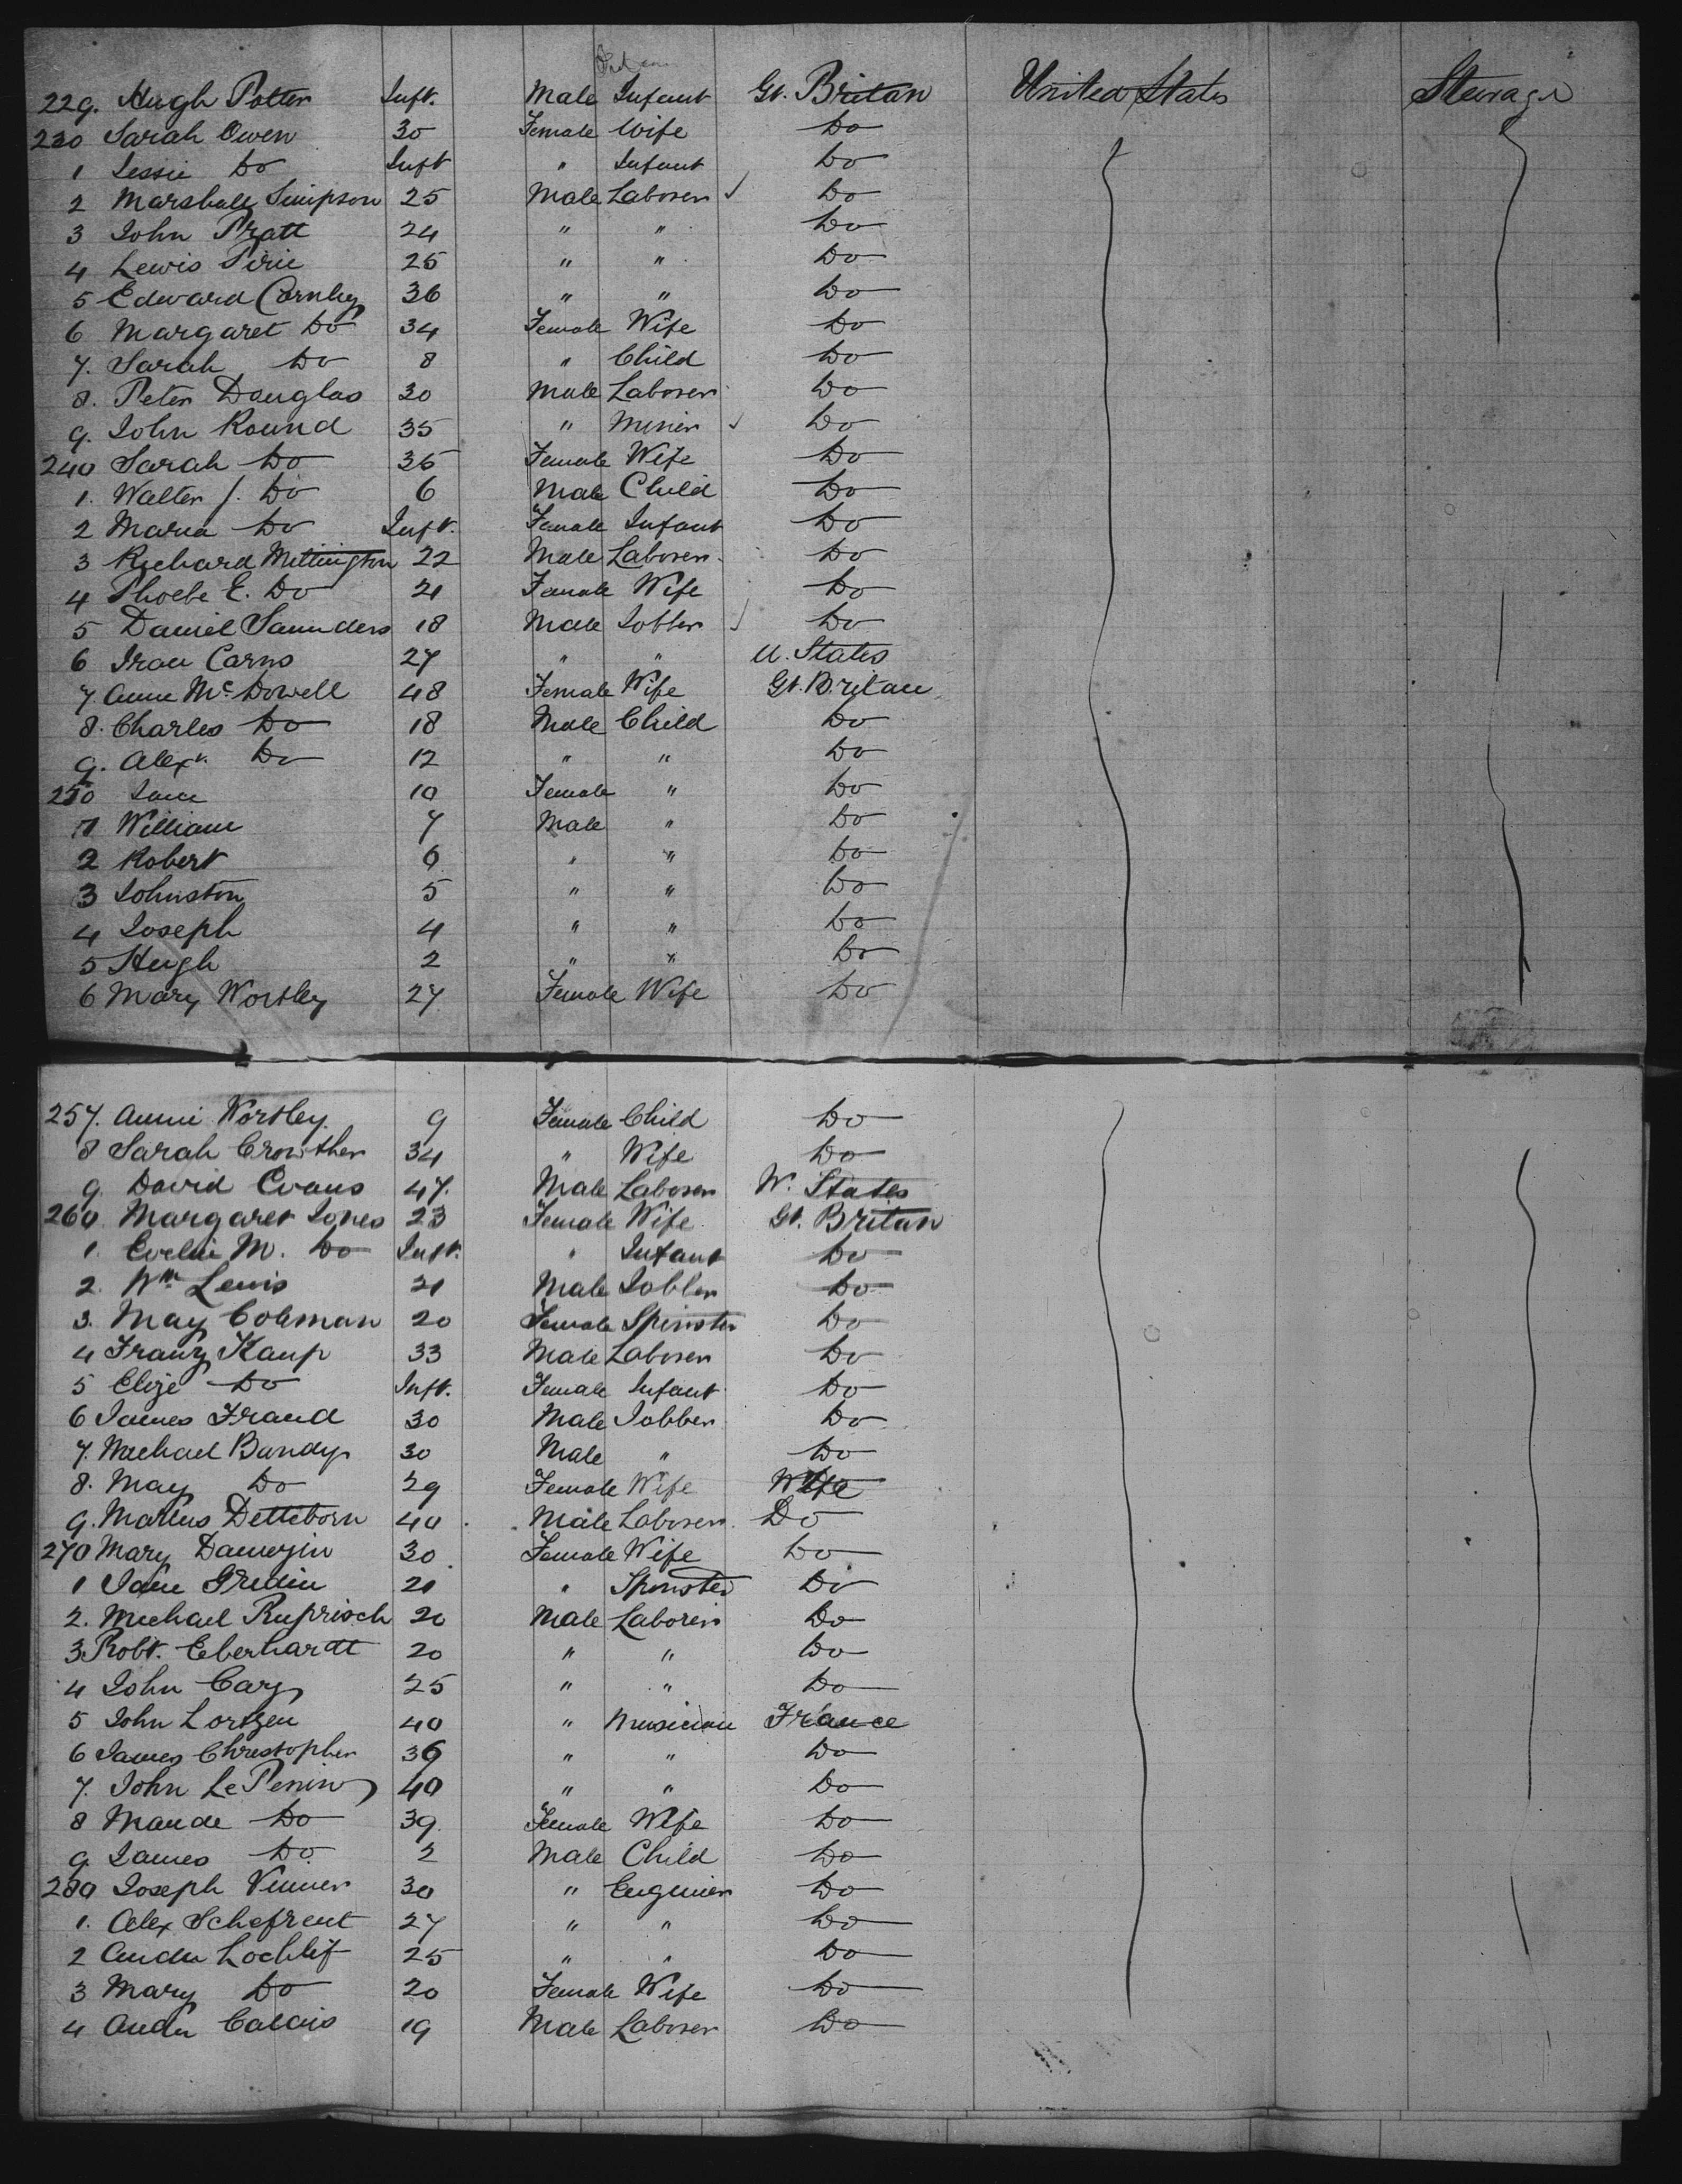 229. Hugh Potter Inft. Male Infant Gt. Britan United States Steerage
230 Sarah Owen 30 Female Wife Do
1 Jessie Do Inft " Infant Do
2 Marshall Simpson 25 Male Laborer ✓ Do
3 John Pratt 24 " " Do
4 Lewis Pirie 25 " " Do
5 Edward Cornley 36 " " Do
6 Margaret Do 34 Female Wife Do
7. Sarah Do 8 " Child Do
8. Peter Douglas 30 Male Laborer Do
9. John Round 35 " Miner ✓ Do
240 Sarah Do 36 Female Wife Do
1. Walter J. Do 6 Male Child Do
2 Maria Do Inft. Female Infant Do
3 Richard Mittington 22 Male Laborer Do
4 Phoebe E. Do 21 Female Wife Do
5 Daniel Saunders 18 Male Jobber ✓ Do
6 Irou Carns 27 " " U. States
7 Anne McDowell 48 Female Wife Gt. Britan
8. Charles Do 18 Male Child Do
9. Alexr. Do 12 " " Do
250 Jane 10 Female " Do
1 William 7 Male " Do
2 Robert 6 " " Do
3 Johnston 5 " " Do
4 Joseph 4 " " Do
5 Hugh 2 " " Do
6 Mary Worsley 27 Female Wife Do
257. Annie Worsley 9 Female Child Do
8 Sarah Crowther 34 " Wife Do
9 David Evans 47. Male Laborer U. States
260 Margaret Jones 23 Female Wife Gt. Britan
1. Evelin M. Do Inft. " Infant Do
2. Wm Lewis 21 Male Jobber Do
3. May Coleman 20 Female Spinster Do
4 Franz Kaup 33 Male Laborer Do
5 Elize Do Inft. Female Infant Do
6 James Fraud 30 Male Jobber Do
7. Michael Bundy 30 Male " Do
8. May Do 29 Female Wife Wife
9. Martius Detteborn 40 Male Laborer Do
270 Mary Damezin 30 Female Wife Do
1 Jane Gredin 21 " Spinster Do
2. Michael Ruprisch 20 Male Laborer Do
3. Robt. Eberhardt 20 " " Do
4 John Cary 25 " " Do
5 John Lortzen 40 " Musician France
6 James Christopher 36 " " Do
7. John Le Penin 40 " " Do
8 Maude Do 39. Female Wife Do
9 James Do 2 Male Child Do
280 Joseph Vimmer 30 " Enginier Do
1. Alex Schefreut 27 " " Do
2 Andu Lochlif 25 " " Do
3 Mary Do 20 Female Wife Do
4 Andu Calais 19 Male Laborer Do